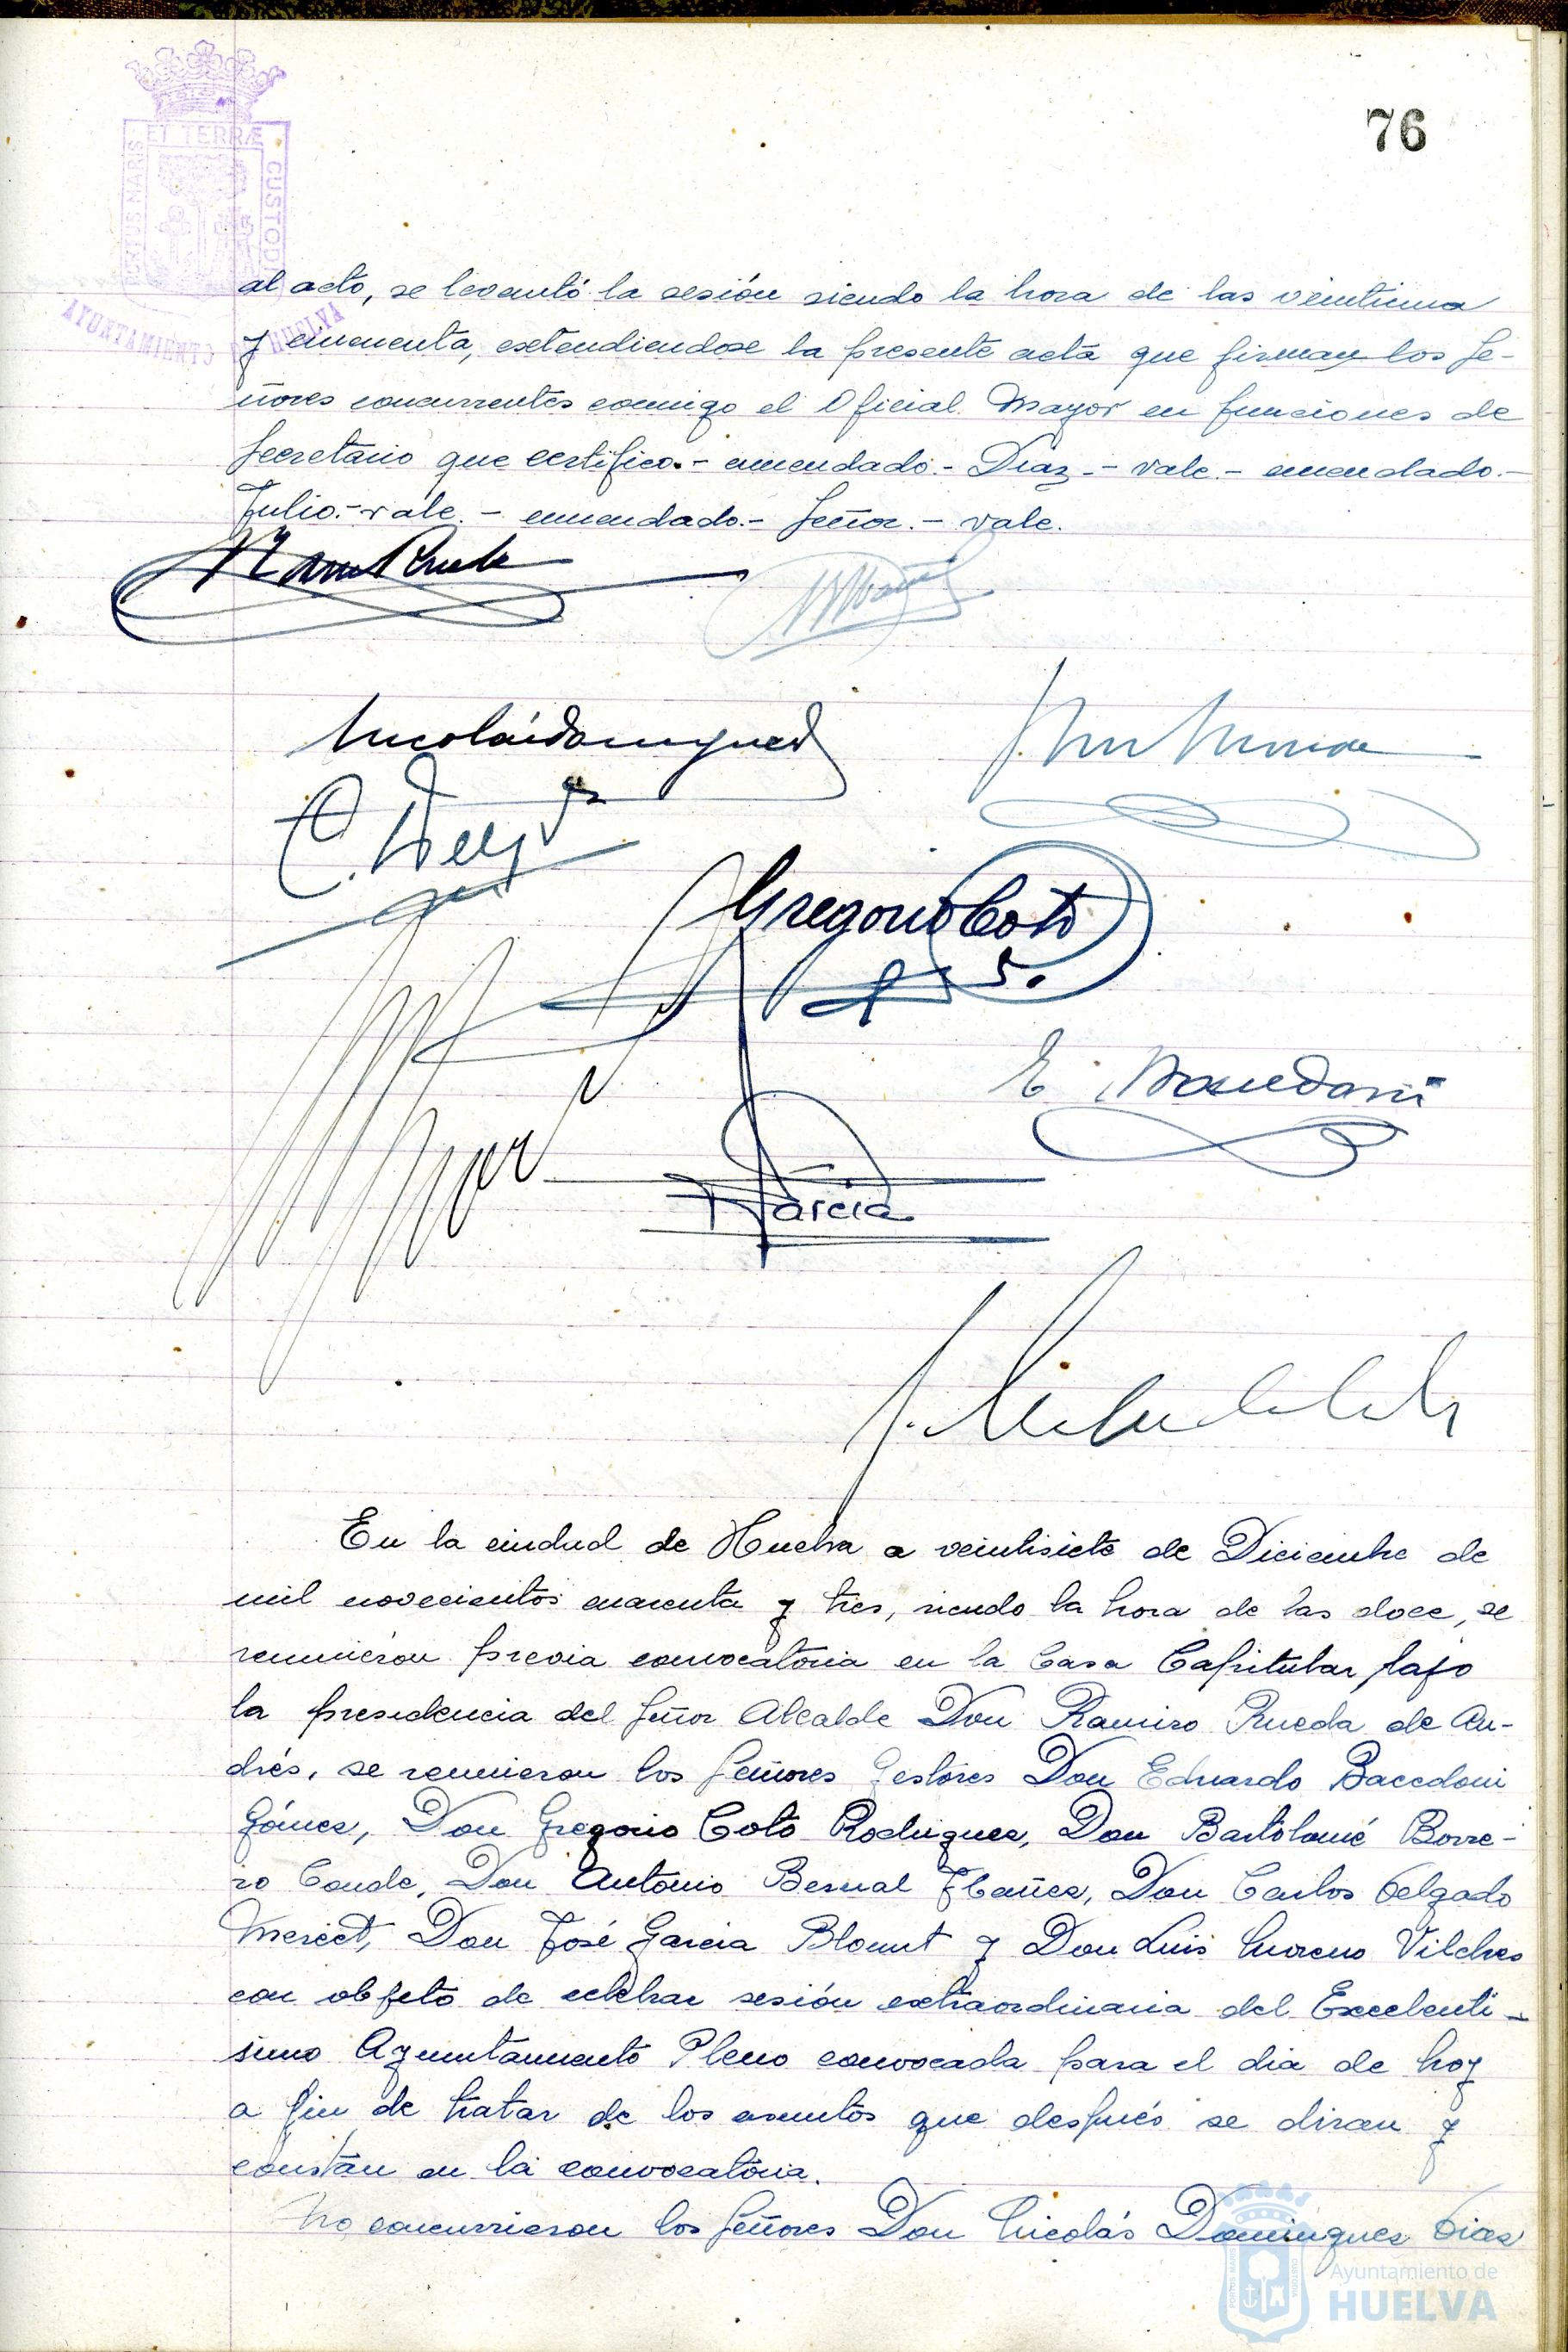 76
PORTUS MARIS ET TERRÆ CUSTODIA
AYUNTAMIENTO DE HUELVA
al acto, se levantó la sesión siendo la hora de las veintiuna
y cincuenta, extendiendose la presente acta que firman los Se-
ñores concurrentes conmigo el Oficial Mayor en funciones de
Secretario que certifico.- enmendado.- Diaz.- vale.- enmendado.-
Julio.- vale.- enmendado.- Señor.- vale.
Nicolás Dominguez
Gregorio Coto
E. Bacedoni
Garcia
En la ciudad de Huelva a veintisiete de Diciembre de
mil novecientos cuarenta y tres, siendo la hora de las doce, se
reunieron previa convocatoria en la Casa Capitular, bajo
la presidencia del Señor Alcalde Don Ramiro Rueda de An-
drés, se reunieron los Señores Gestores Don Eduardo Bacedoni
Gómez, Don Gregorio Coto Rodriguez, Don Bartolomé Borre-
ro Conde, Don Antonio Bernal Ibañez, Don Carlos Delgado
Mercet, Don José Garcia Blount y Don Luis Moreno Vilches
con objeto de celebrar sesión extraordinaria del Excelenti-
simo Ayuntamiento Pleno convocada para el dia de hoy
a fin de tratar de los asuntos que después se diran y
constan en la convocatoria.
No concurrieron los Señores Don Nicolás Dominguez Diaz
Ayuntamiento de
HUELVA